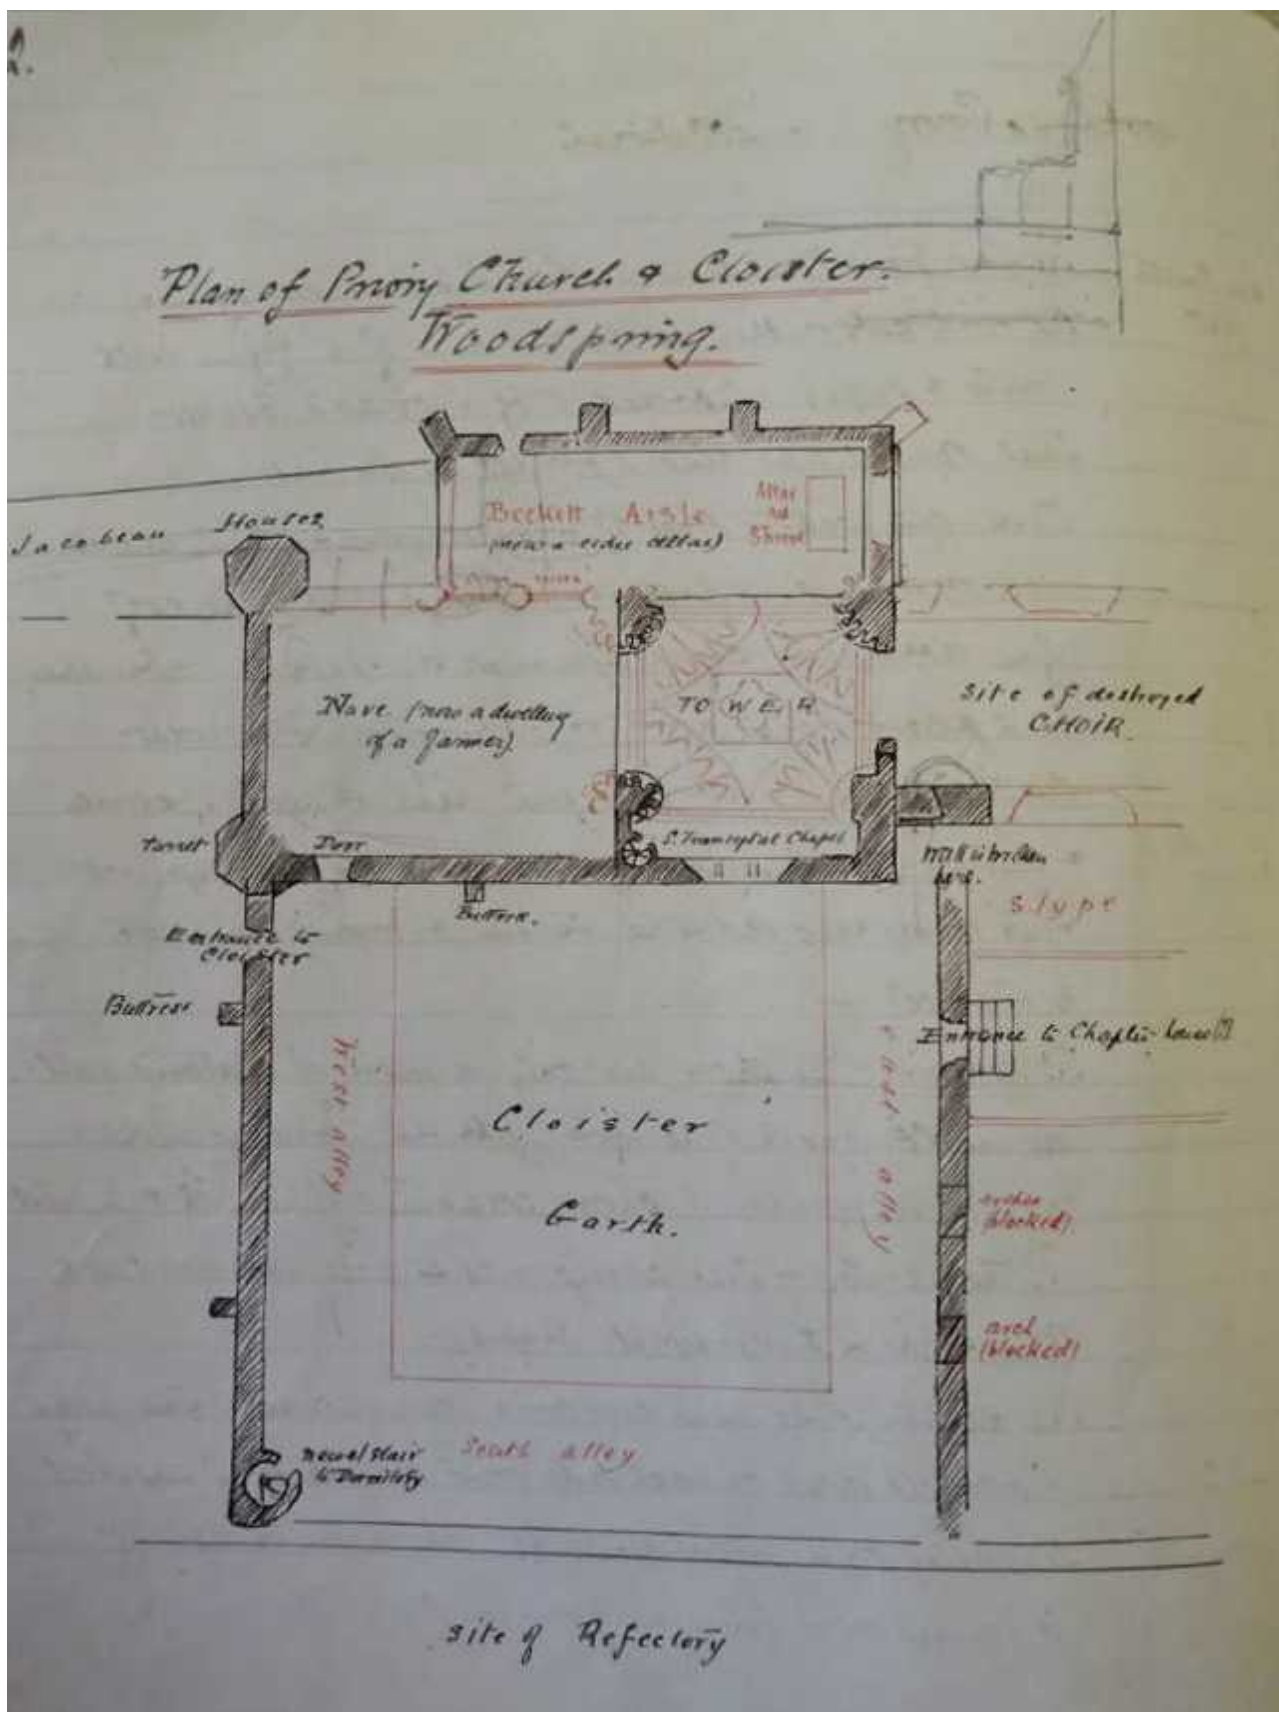 2.
Plan of Priory Church & Cloister.
Woodspring.
Jacobean House
Beckett Aisle
(now a cider cellar)
Altar
Shrine
Nave (now a dwelling
of a farmer)
TOWER
Site of destroyed
CHOIR.
turret
Door
S. Transeptal Chapel
Wall is broken
here.
Slype
Buttress.
Entrance to
Cloister
Buttress
Entrance to Chapter-house (?)
West alley
Cloister
Garth.
East alley
arches
(blocked)
arch
(blocked)
newel stair
to Dormitory
South alley
Site of Refectory